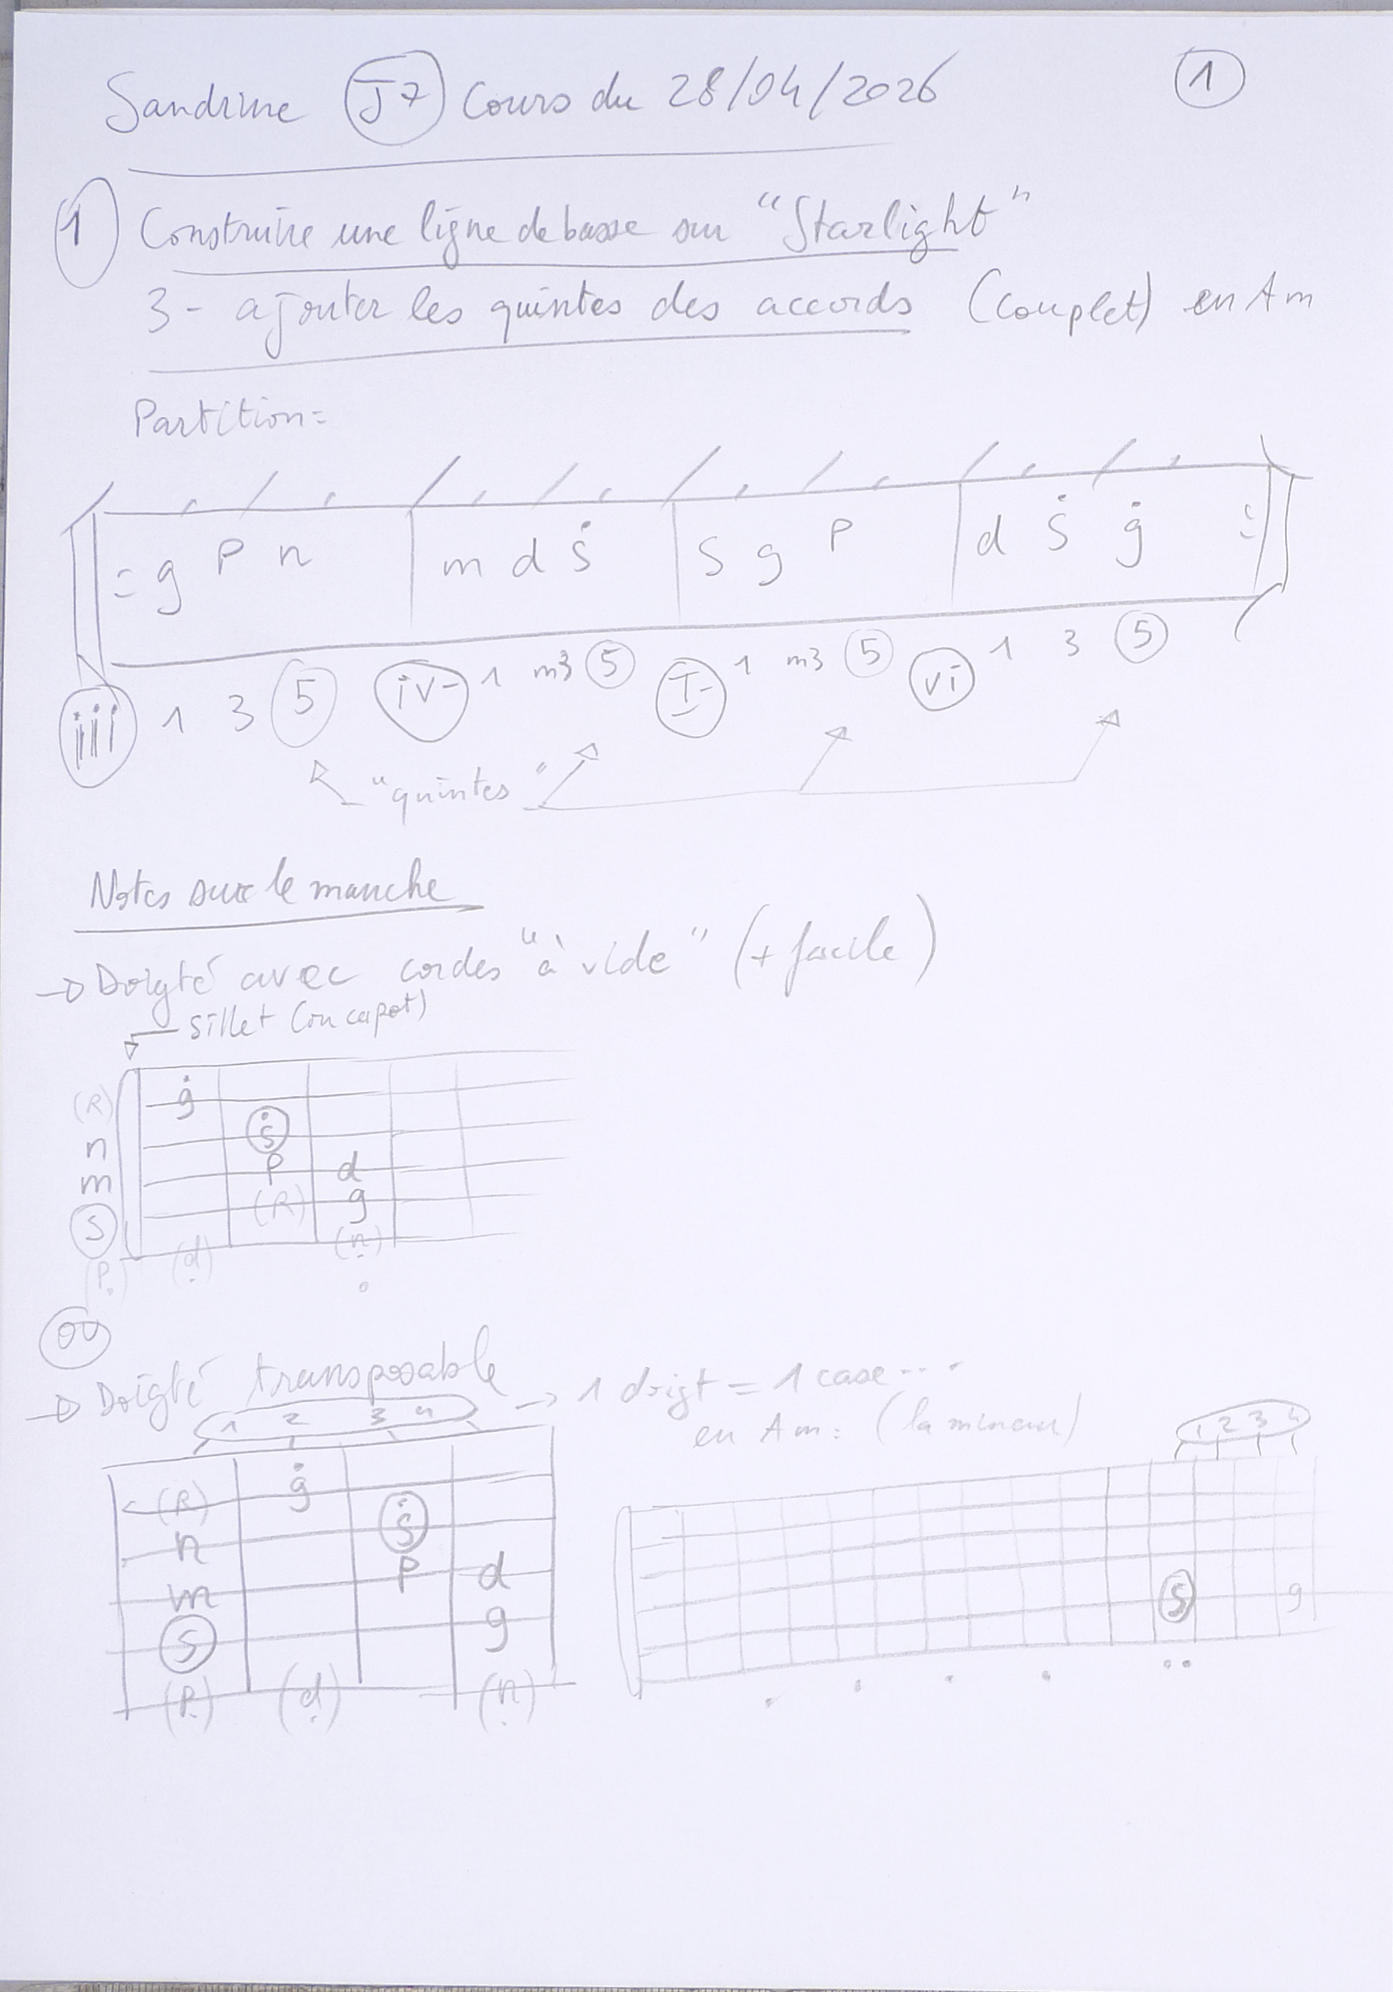 Sandrine J7 Cours du 28/04/2026 1
1 Construire une ligne de basse sur "Starlight"
3- ajouter les quintes des accords (couplet) en Am
Partition=
= g P n m d ṡ S g P d ṡ ġ =
iii 1 3 5 iv- 1 m3 5 I- 1 m3 5 vi 1 3 5
"quintes"
Notes sur le manche
→ Doigté avec cordes "à vide" (+ facile)
sillet (ou capot)
(R) ġ
n ṡ
m P d
S (R) g
(P) (d) (n)
ou
→ Doigté transposable → 1 doigt = 1 case...
en Am: (la mineur)
1 2 3 4
(R) ġ
n ṡ
m P d
S g
(P) (d) (n)
1 2 3 4
S g